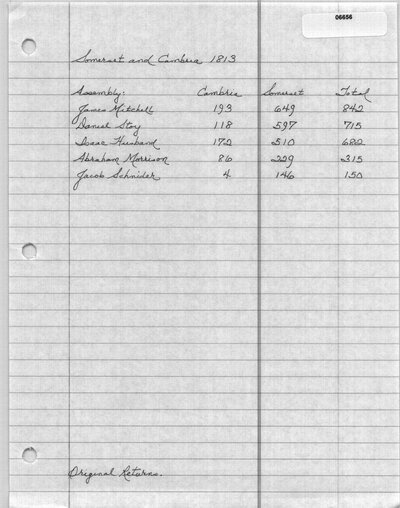 06656
Somerset and Cambria 1813
Assembly: Cambria Somerset Total
James Mitchell 193 649 842
Daniel Stoy 118 597 715
Isaac Husband 172 510 682
Abraham Morrison 86 229 315
Jacob Schnider 4 146 150
Original Returns.